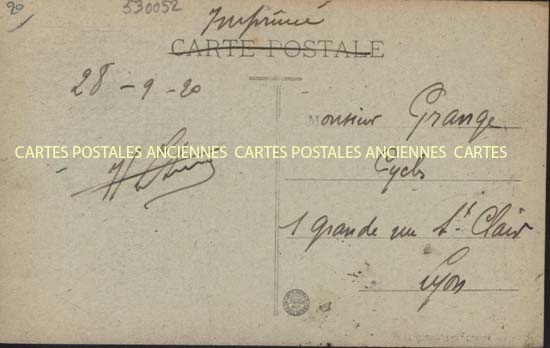 20
530052
Imprimé
CARTE POSTALE
28 - 9 - 20
Monsieur Grange
CARTES POSTALES ANCIENNES CARTES POSTALES ANCIENNES CARTES
Cycles
1 grande rue St Clair
Lyon